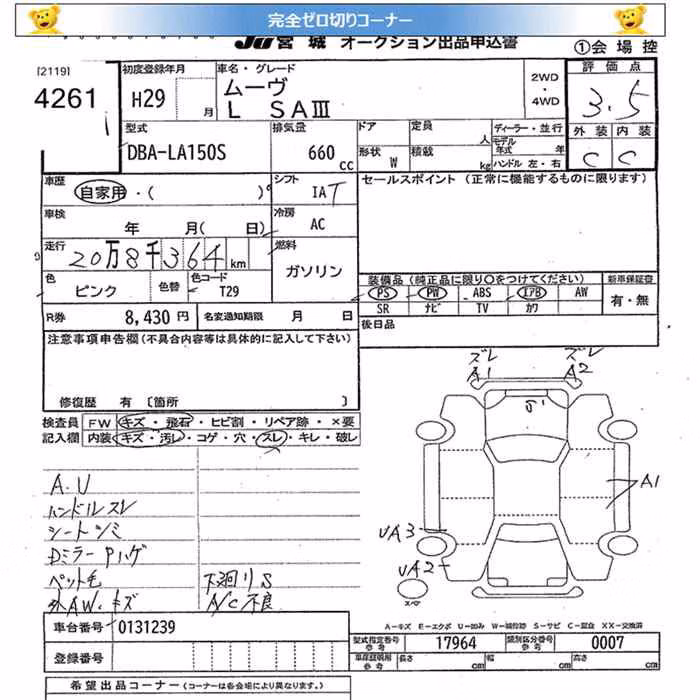 完全ゼロ切りコーナー
JU宮城 オークション出品申込書
①会場控
[2119]
4261
初度登録年月
H29 月
車名・グレード
ムーヴ
L SAⅢ
2WD
・
4WD
評価点
3.5
外装 内装
C C
型式
DBA-LA150S
排気量
660 cc
ドア
形状 W
定員 人
積載 kg
ディーラー・並行
モデル年式 年
ハンドル 左・右
車歴
自家用・( )
シフト
IAT
セールスポイント (正常に機能するものに限ります)
車検
年 月( 日)
冷房
AC
走行
20万8千364km
燃料
ガソリン
色
ピンク
色替
色コード
T29
装備品(純正品に限り○をつけてください)
新車保証書
PS PW ABS エアB AW
SR ナビ TV カワ
有・無
R券 8,430円
名変通知期限 月 日
後日品
注意事項申告欄(不具合内容等は具体的に記入して下さい)
修復歴 有 〔箇所 〕
検査員
記入欄
FW キズ・飛石・ヒビ割・リペア跡・×要
内装 キズ・汚レ・コゲ・穴・スレ・キレ・破レ
A.U
ハンドルスレ
シートシミ
Dミラー Pハゲ
ペット毛
外AW.キズ
下廻りS
A/C不良
ズレ
A1
ズレ
A2
A1
UA3
UA2
スペア
A-キズ E-エクボ U-凹み W-補修跡 S-サビ C-腐食 XX-交換済
車台番号 0131239
登録番号
型式指定番号 17964
類別区分番号 0007
車庫証明用参考
長さ cm
幅 cm
高さ cm
希望出品コーナー(コーナーは各会場により異なります。)